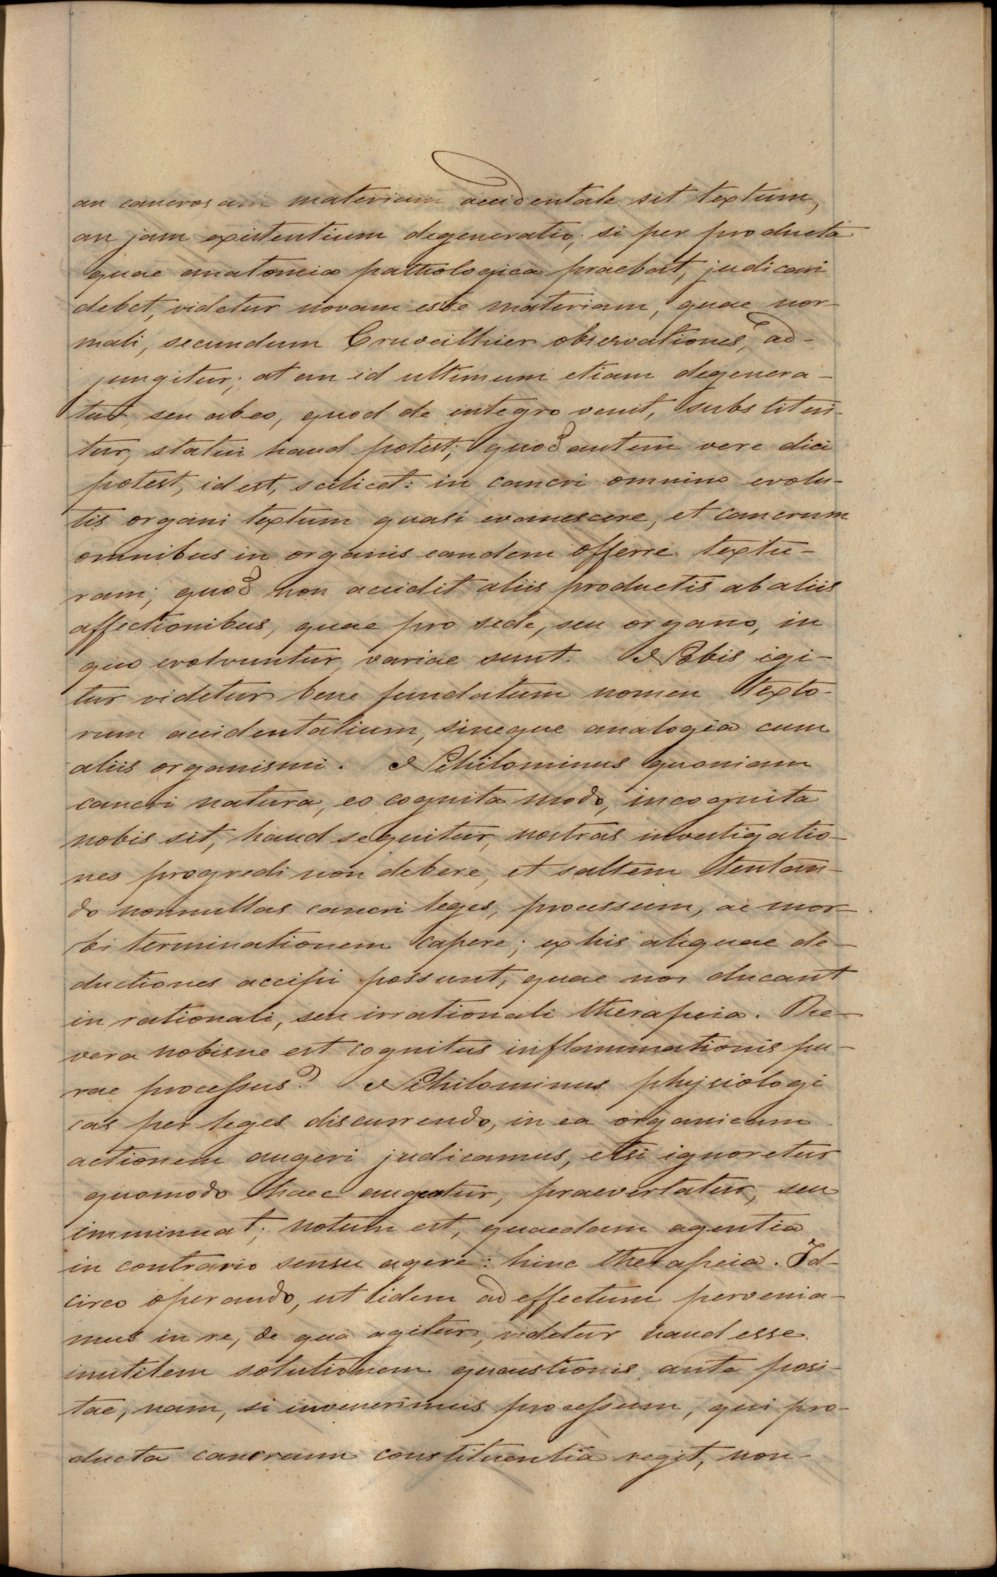 an cancrosam materiam accidentale sit textum,
an jam existentium degeneratio, si per producta
quae anatomia pathologica praebat, judicari
debet, videtur novam esse materiam, quae nor-
mali, secundum Cruveilhier observationes, ad-
jungitur; at an id ultimum etiam degenera-
tur seu ab eo, quod de integro venit, substitui-
tur, statui haud potest; quod autem vere dici
potest, id est, scilicet: in cancri omnino evolu-
tis organi textum quasi evanescere, et cancrum
omnibus in organis eandem offerre textu-
ram; quod non accidit aliis productis ab aliis
affectionibus, quae pro sede, seu organo, in
quo evolvuntur, variae sunt. Nobis igi-
tur videtur bene fundatum nomen texto-
rum accidentalium, sineque analogia cum
aliis organismi. Nihilominus quoniam
cancri natura, eo cognita modo, incognita
nobis sit, haud sequitur, nostras investigatio-
nes progredi non debere, et saltem tentan-
do nonnullas cancri leges, processum, ac mor-
bi terminationem capere; ex his aliquae de-
ductiones accipi possunt, quae nos ducant
in rationali, seu irrationali therapeia. Re-
vera nobisne est cognitus inflammationis pu-
rae processus? Nihilominus physiologi
cas per leges discurrendo, in ea organicam
actionem augeri judicamus, etsi ignoretur
quomodo haec augeatur, praevertatur, seu
imminuat; notum est, quaedam agentia
in contrario sensu agere: hinc therapeia. Id-
circo operando, ut iidem ad effectum pervenia-
mus in re, de qua agitur, videtur haud esse
inutilem solutionem quaestionis ante posi-
tae, nam, si invenerimus processum, qui pro-
ducta cancrum constituentia regit, non-